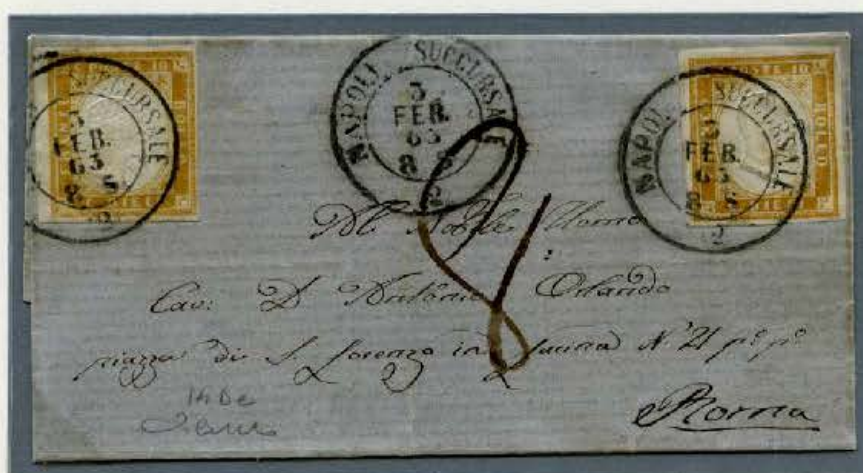 NAPOLI SUCCURSALE
3
FEB.
63
8 S
2
NAPOLI SUCCURSALE
3
FEB.
63
8 S
2
NAPOLI SUCCURSALE
3
FEB.
63
8 S
2
8
Al Nobile Uomo
Cav: D Antonio Orlando
piazza di S. Lorenzo in Lucina N.° 21 p.° p.°
Roma